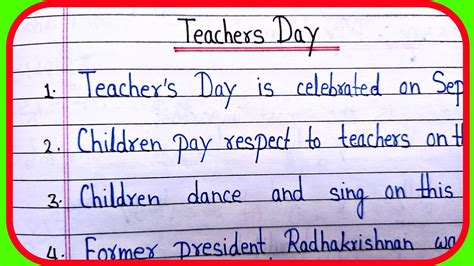 Teachers Day
1. Teacher's Day is celebrated on Sep
2. Children pay respect to teachers on th
3. Children dance and sing on this
4. Former president Radhakrishnan wa